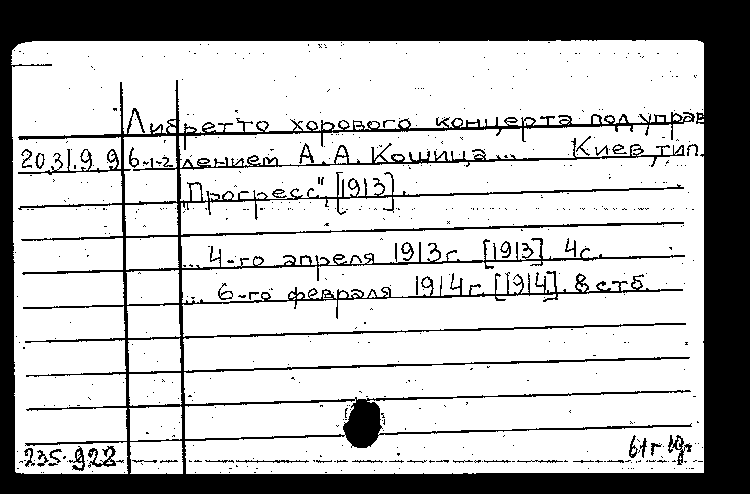 Либретто хорового концерта под управ
20.31.9.9 6-1-2 лением А. А. Кошица... Киев, тип.
"Прогресс", [1913].
... 4-го апреля 1913 г. [1913]. 4 с.
... 6-го февраля 1914 г. [1914]. 8 стб.
235.928